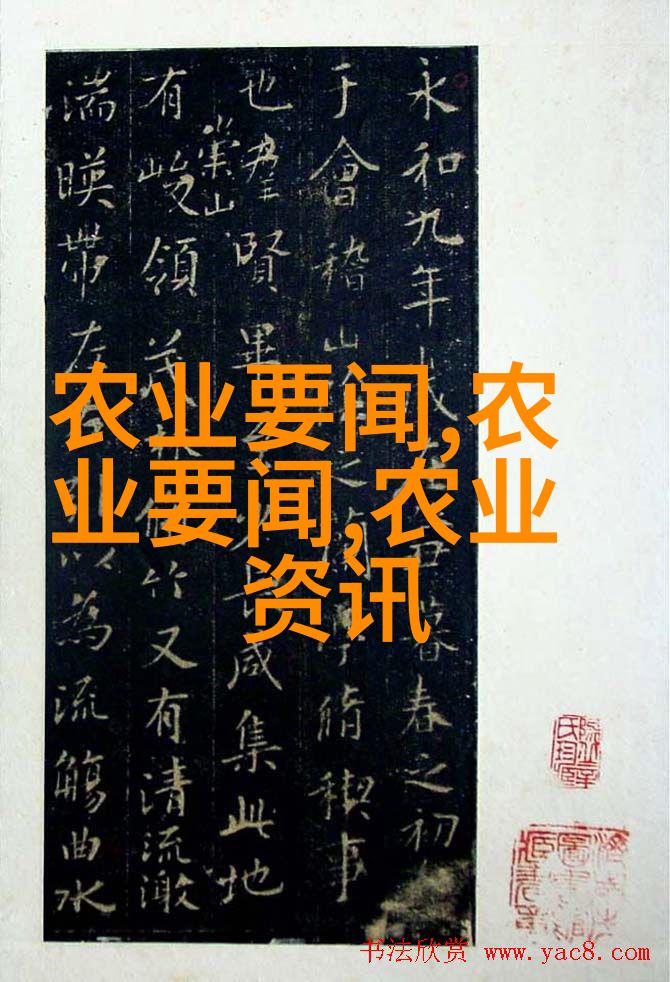 永和九年歲丑暮春之初
于會稽山陰之蘭亭脩稧事
也羣賢畢至少長咸集此地
有崇山峻領茂林脩竹又有清流激
湍暎帶左右引以為流觴曲水
农业要闻,农
业要闻,农业
资讯
书法欣赏 www.yac8.com